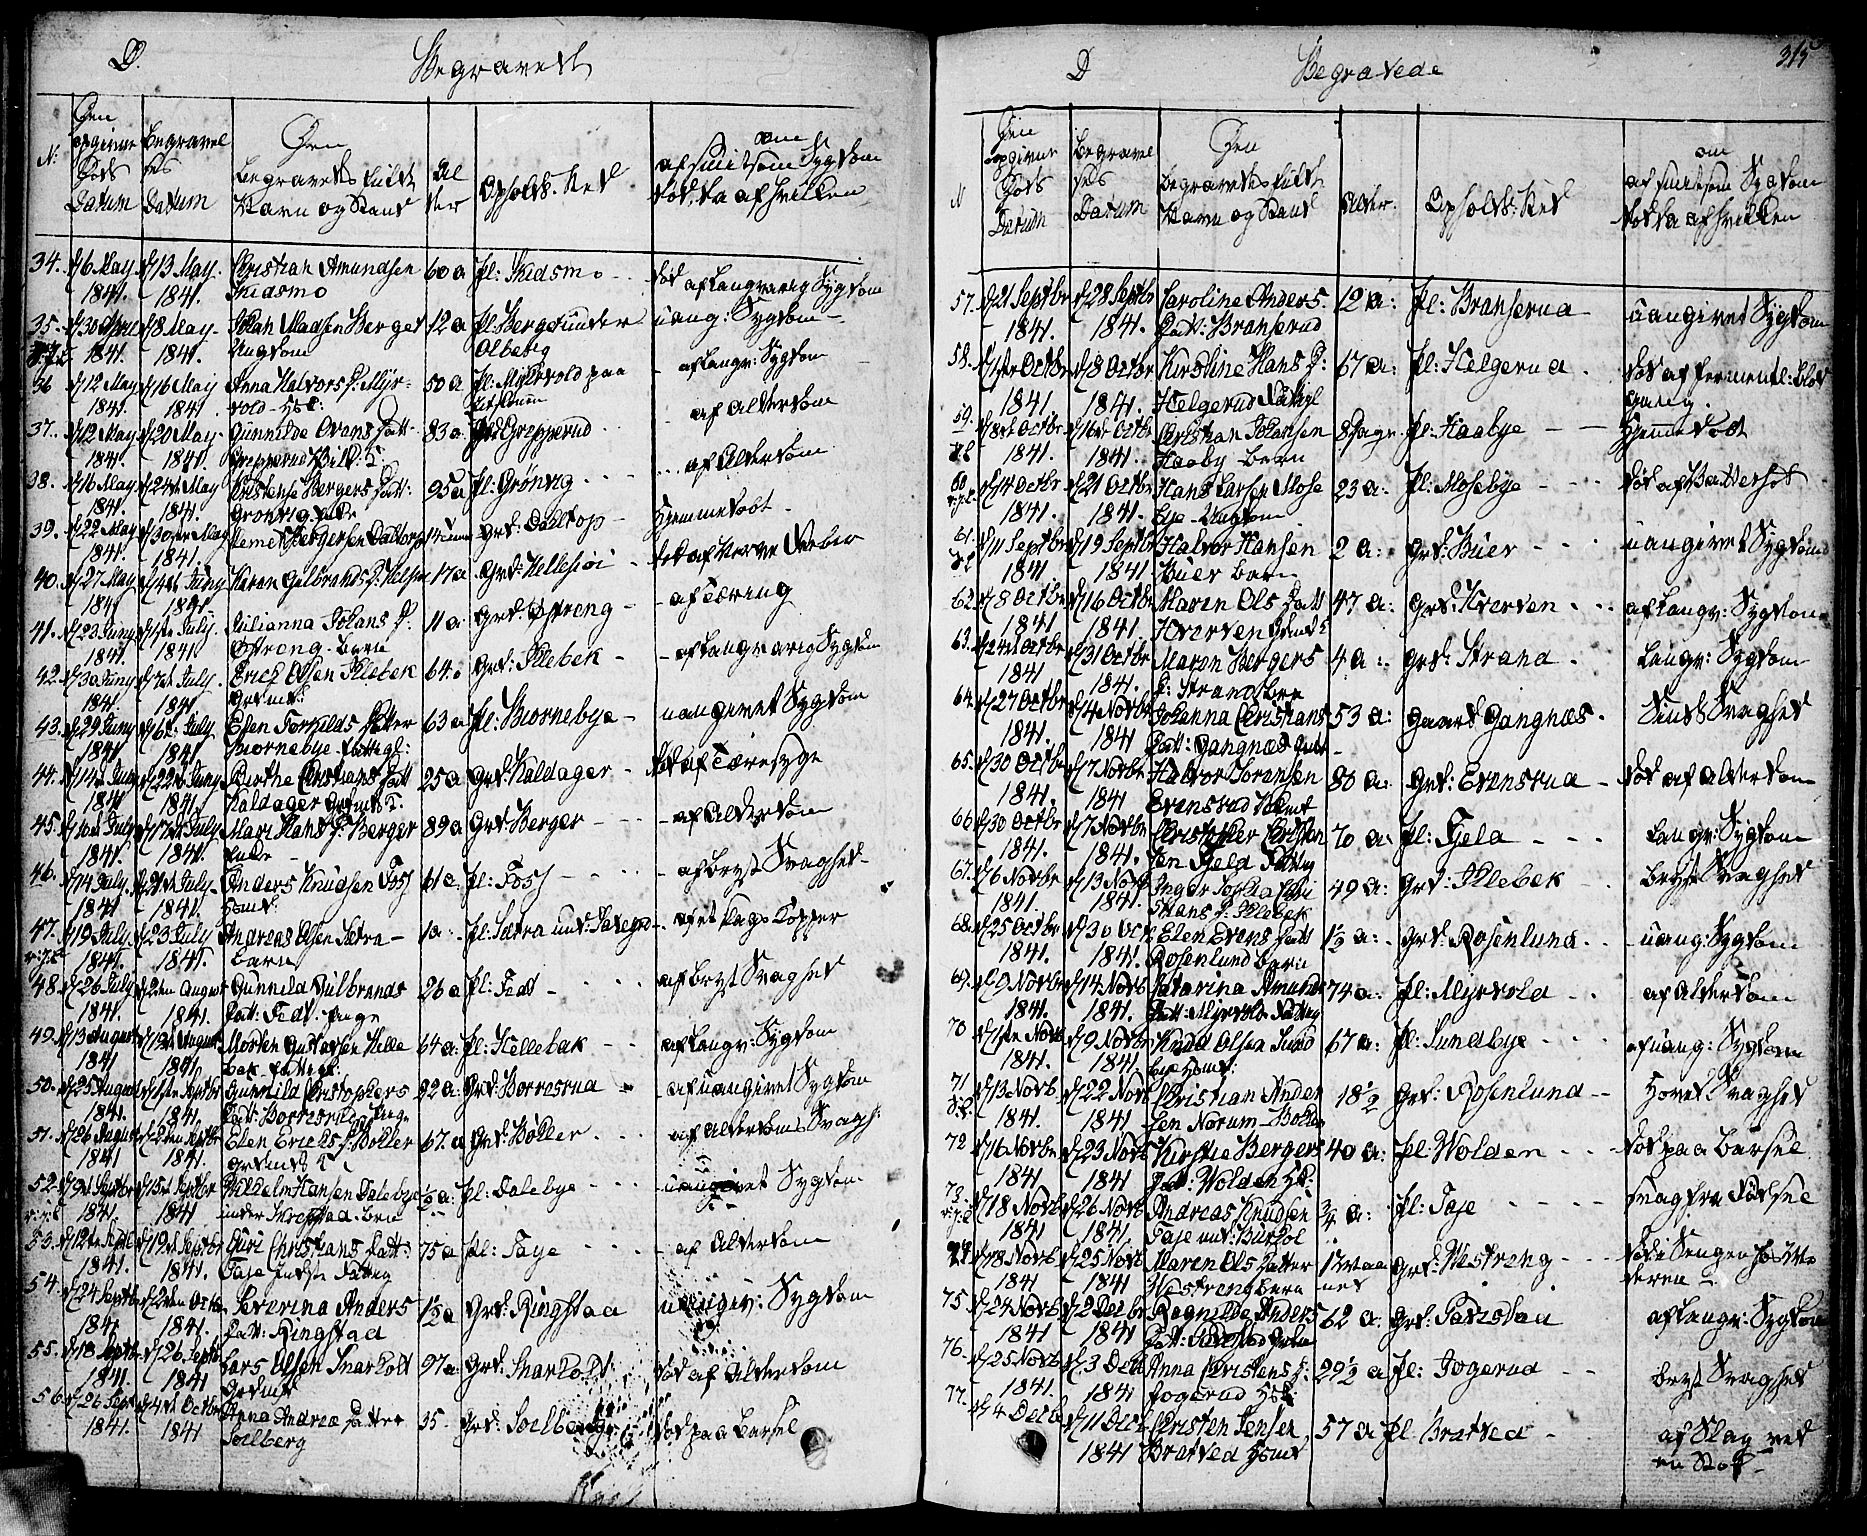 D. Begravede
N: Den opgivne Døds Datum Begravelses Datum Den Begravedes fulde Navn og Stand Alder Opholds-Sted om af smitsom Sygdom død, da af hvilken
34. d/6 May 1841. d/13 May 1841. Christian Amundsen Skidsmo 60 a pl: Skidsmo død af langvarig Sygdom
35. d/30 April 1841. d/8 May 1841. Johan Madsen Berget Ungdom 12 a pl: Berget under Olberg uang: Sygdom
36 d/12 May 1841. d/16 May 1841. Anna Halvors D. Myrvold 50 a pl: Myrvold paa af langv: Sygdom
37. d/12 May 1841. d/20 May 1841. Gunnilde Evans Datt Grepperud 83 a Grd Grepperud af Alderdom
38. d/16 May 1841. d/24de May 1841. Christense Bergers Datt: Grönvig 95 a pl: Grönvig af Alderdom
39. d/22 May 1841. d/30te May 1841. Bergersen Daltorp grd: Daltop Hjemmedøbt
40. d/27 May 1841 d/4de Juny 1841. Karen Gulbrands D. 17 a Grd: Hellesiöi død af Nerve Feber
41. d/23 Juny 1841. d/1ste July 1841 Julianna Johans D. Östreng. Barn 11 a Grd: Östreng af Tæring
42. d/30 Juny 1841. d/7de July 1841 Erich Olsen Illebek Grdmd: 64. Grd: Illebek af langvarig Sygdom
43. d/29 Juny 1841 d/6te July 1841 Elsen Torkilds Datter Biørnebye fattigl: 63 a pl: Biornebye uangivet Sygdom
44. d/14de Juny 1841 d/22de Juny 1841. Berthe Christians Datt Kaldager 25 a Grd Kaldager død af Tæresyge
45. d/10de July 1841. d/17de July 1841. Mari Hans D. Berger Enke 89 a Grd Berger af Alderdom
46. d/14 July. 1841 d/21de July 1841. Anders Knudsen Foss Hsmd: 61 a pl: Foss af bryst Svaghed
47. d/19 July 1841. d/23 July 1841. Andreas Olsen Sætra Barn 1 a: pl: Sætra und: af et Slags Kopper
48. d/26 July 1841. d/2den August 1841. Gunnild Gulbrands Datt: Fedt. Pige 26 a pl: Fedt af bryst Svaghed
49. d/13 August 1841 d/19de August 1841. Morten Gustavsen Hellebek fattigl: 64 a: pl: Hellebak af langv: Sygdom
50. d/25 August 1841. d/1ste Septbr 1841. Gunnild Christophers Datt: Borresrud Pige 22 a: Grd: Borresrud af uangivet Sygdom
51. d/26 August 1841 d/2den Septbr 1841. Elen Erichs D. Böller 67. a Grd: Böller af Alderdoms Svagh:
52. d/9de Septbr 1841. d/15de Septbr 1841 Wilhelm Hansen Dalebye under Barn ½ a: pl: Dalebye uangivet Sygdom
53. d/12te Septbr 1841. d/19de Septbr 1841. Guri Christians Datt: Faje 75 a pl: Faye af Alderdom
54. d/24 Septbr 1841 d/2den Octbr 1841. Severina Anders Datt: Ringstad 1½ a Grd: Ringstad uangiv: Sygdom
55. d/18 Septbr 1841. d/26 Septbr 1841 Lars Olsen Snarholdt Grdmd 97 a: Grd: Snarholdt død af Alderdom
56 d/26 Septbr 1841. d/4de Octbr 1841 Anna Andrea Datter Solberg 35 Grd: Solberg død paa Barsel
D Begravede 315
N Den opgivne Døds Datum Begravelses Datum Den Begravedes fulde Navn og Stand Alder. Opholds-Sted om af smitsom Sygdom død da af hvilken
57. d/21 Septbr 1841. d/28 Septbr 1841. Caroline Anders Datt: Branserud 12 a: pl: Branserud uangivet Sygdom
58. d/1ste Octbr 1841 d/8 Octbr 1841. Kirstine Hans D: Helgerud 67 a: pl: Helgerud død af
59. d/8de Octbr 1841. d/16de Octbr 1841. Christian Johansen Haaby Barn 8 Dage pl: Haabye Hjemmedøbt
60 d/14 Octbr 1841. d/21 Octbr 1841. Hans Larsen Mosebye Ungdom 23 a: pl: Mosebye død af
61. d/11 Septbr 1841 d/19 Septbr 1841 Halvor Hansen Buer Barn 2 a: Grd: Buer uangivet Sygdom
62. d/8 Octbr 1841 d/16 Octbr 1841. Maren Ols Datt Hverven 47 a: Grd: Hverven af langv: Sygdom
63. d/24de Octbr 1841 d/31 Octbr 1841. Maren Bergers D: Strand Barn 4 a: Grd: Strand langv: Sygdom
64. d/27 Octbr 1841. d/4 Novbr 1841 Johanna Christians Datt: Gangnæs 53 a: Gaard Gangnæs Sinds Svaghed
65. d/30 Octbr 1841. d/7 Novbr 1841 Halvor Joransen Evensrud 80 a: Grd: Evensrud død af Alderdom
66 d/30 Octbr 1841. d/7 Novbr 1841. Christopher Fjeld 70 a: pl: Fjeld langv: Sygdom
67. d/6 Novbr 1841. d/13 Novb 1841. Inger Sophia Christians D. Illebek 49 a: Grd: Illebek bryst Svaghed
68. d/25 Octbr 1841. d/30 Oct 1841. Elen Evens Datt Rosenlund Barn 1½ a: Grd: Rosenlund uang: Sygdom
69. d/9 Novbr 1841. d/14 Novb 1841. Catarina Amunds Datt: Myrvold 74 a: pl: Myrvold af Alderdom
70 d/1ste Novb 1841. d/9 Novbr 1841. Knud Olsen Sundbye Hsmd: 67 a: pl: Sundbye af uang: Sygdom
71 d/13 Novb 1841. d/22 Novb 1841 Christian Andersen Norum 18½ Grd: Rosenlund Hoved Svaghed
72 d/16 Novbr 1841 d/23 Novb 1841 Kirstie Bergers Datt: Wolden 40 a: pl: Wolden død paa Barsel
73 d/18 Novb 1841 d/26 Novb 1841 Andreas Knudsen Faje ¾ a: pl: Faje svag fra Fødsel
74 d/18 Novb 1841 d/25 Novb 1841 Maren Ols Datter Westreng Barn Grd: Westreng død i Sengen hos Moderen
75. d/24 Novb 1841 d/2 Decbr 1841 Ragnilde Anders Datt: 62 a: Grd: af langv: Sygdom
76. d/25 Novb 1841. d/3 Decb 1841 Anna Christens D. Fogerud 29½ a pl: Fogerud bryst Svaghed
77. d/4 Decb d/11 Decb 1841 Christen Jensen Bratved Hsmd 57 a pl: Bratved af Slag ved en Stok